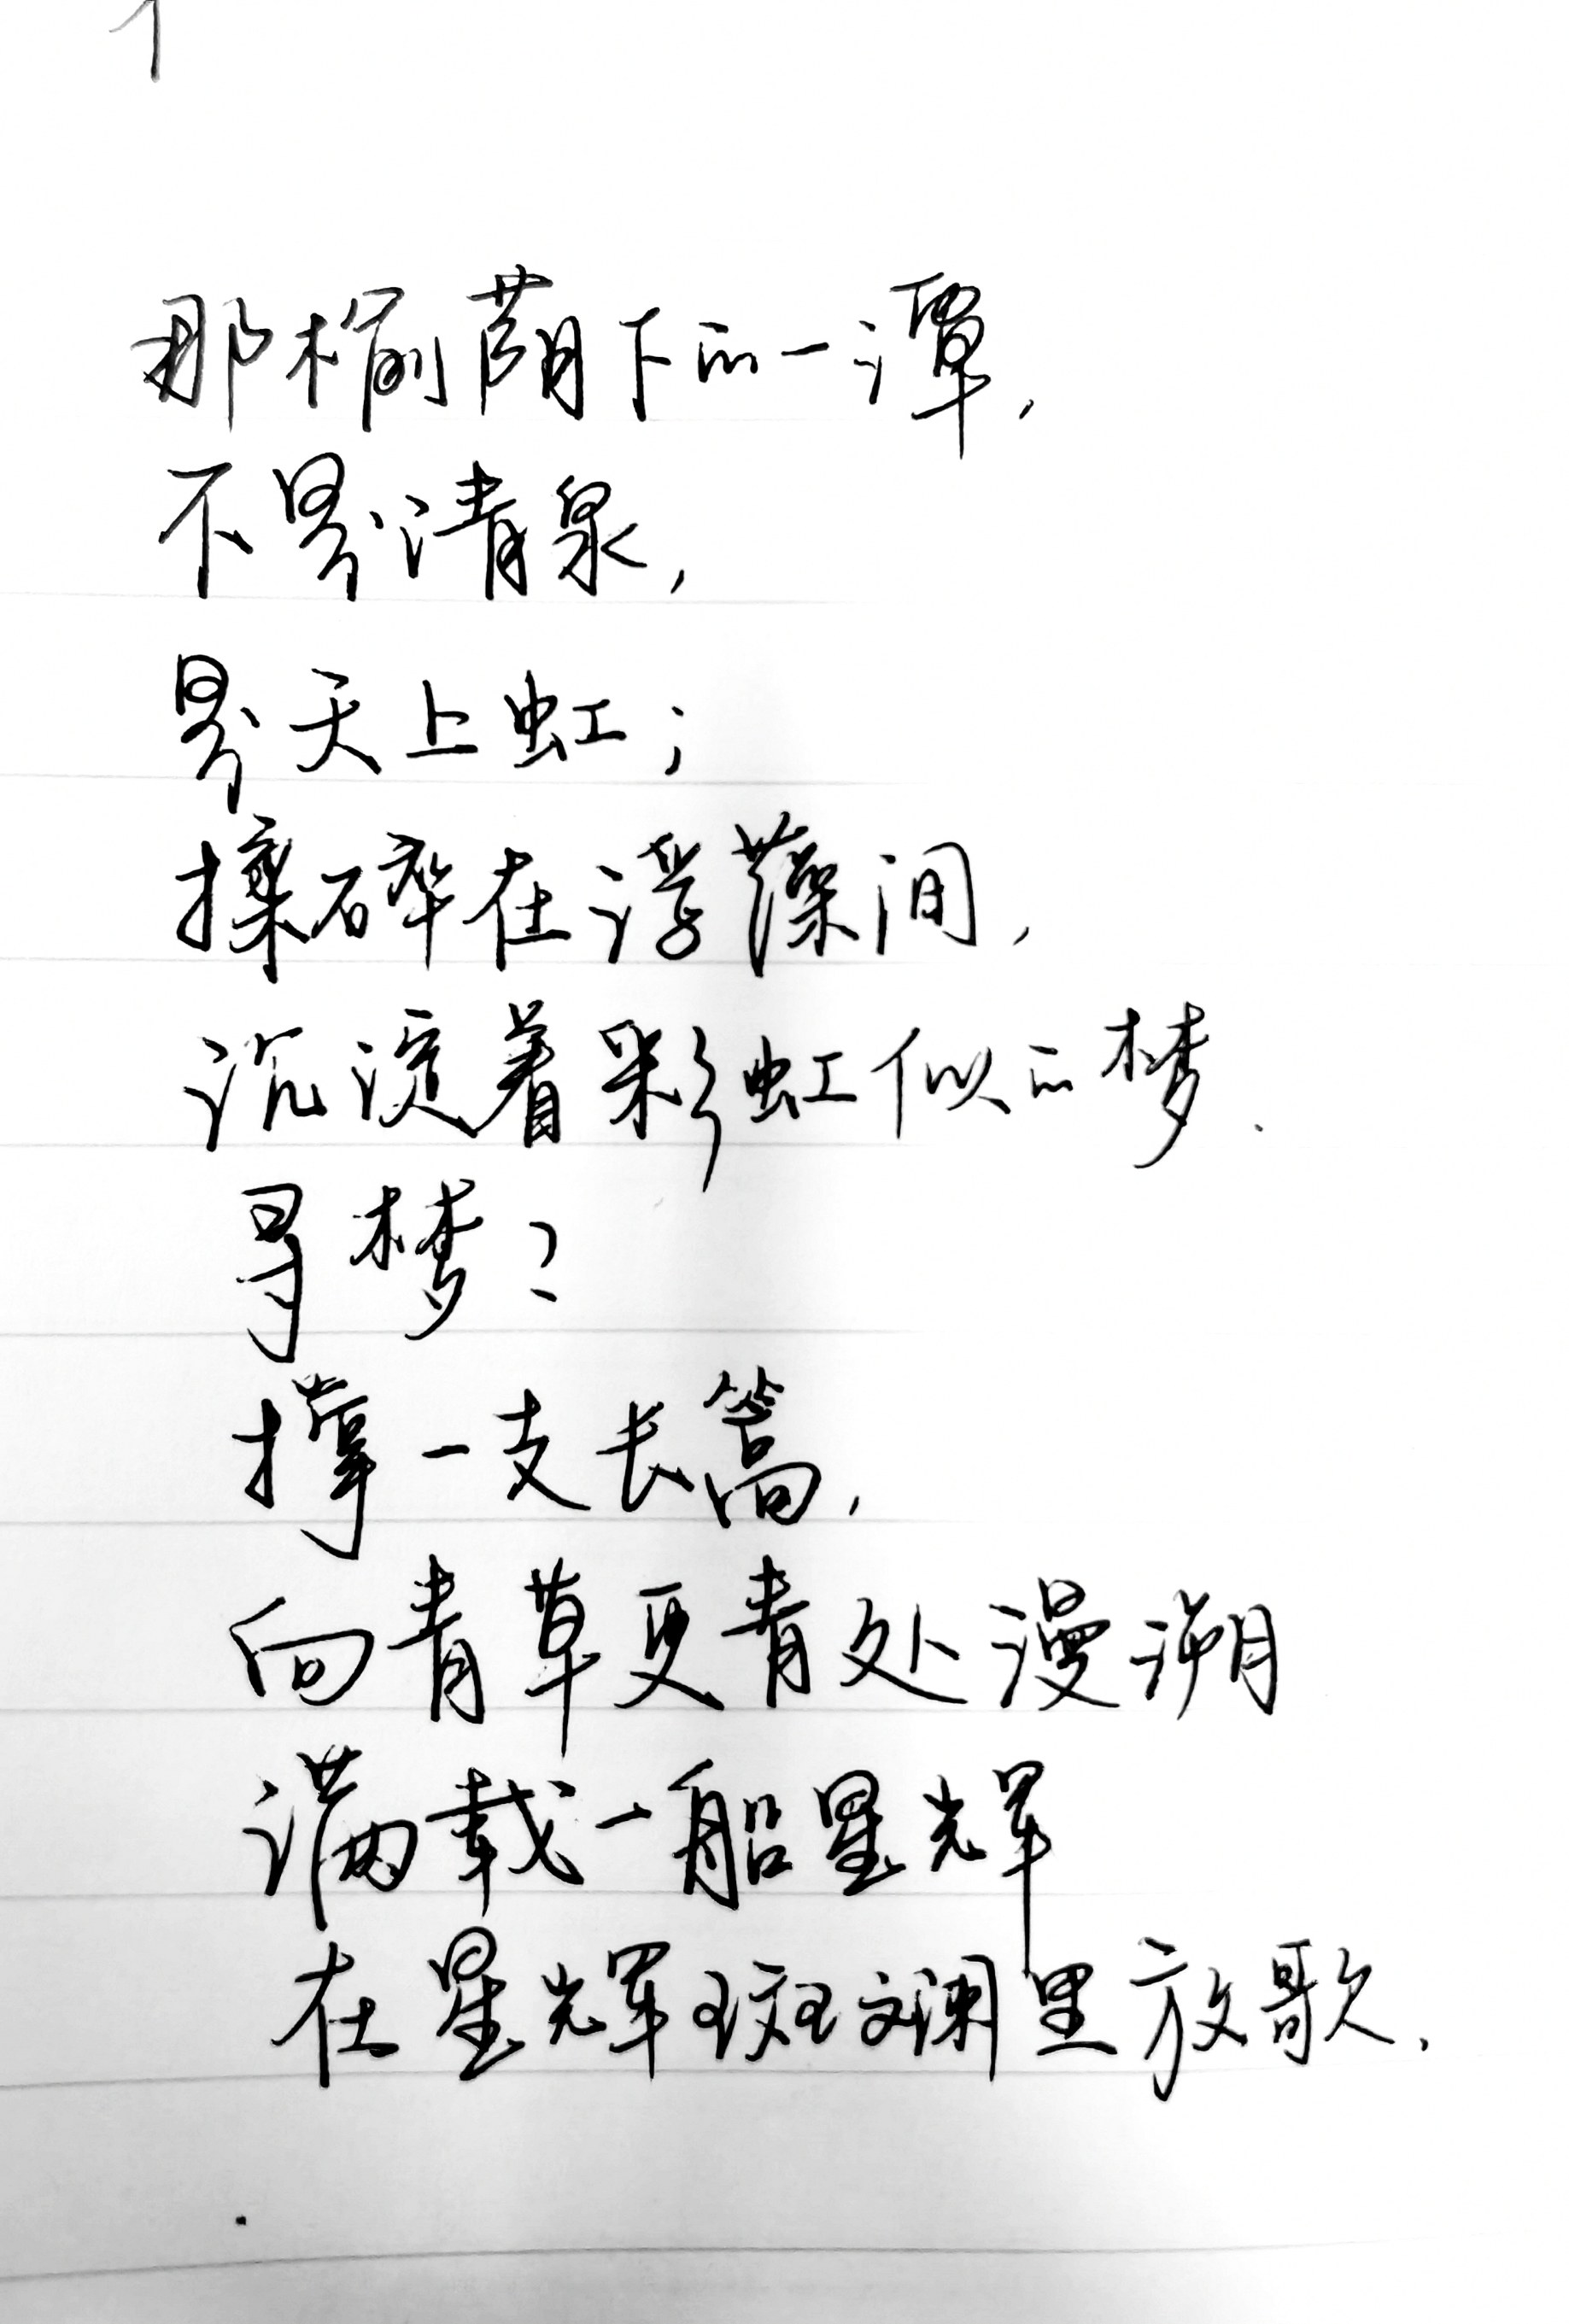 那榆荫下的一潭,
不是清泉,
是天上虹;
揉碎在浮藻间,
沉淀着彩虹似的梦.
寻梦?
撑一支长篙,
向青草更青处漫溯
满载一船星辉
在星辉斑斓里放歌.